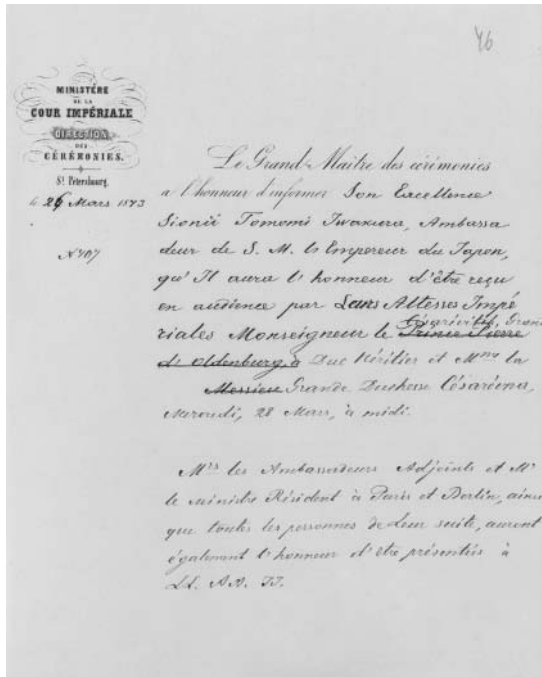 46
MINISTÈRE
DE LA
COUR IMPÉRIALE
DIRECTION
DES
CÉRÉMONIES.
St. Petersbourg.
le 26 Mars 1873
N 707
Le Grand-Maitre des cérémonies
a l'honneur d'informer Son Excellence
Sionii Tomomi Iwakura, Ambassa
deur de S. M. l'Empereur du Japon,
qu'Il aura l'honneur d'être reçu
en audience par Leurs Altesses Impé
riales Monseigneur le Prince Pierre Césarévitch, Grand
de Oldenburg, à Duc Héritier et Mme la
Messieu Grande Duchesse Césarévna,
Mercredi, 28 Mars, à midi.
Mrs les Ambassadeurs Adjoints et Mr
le Ministre Résident à Paris et Berlin, ainsi
que toutes les personnes de leur suite, auront
également l'honneur d'être présentés à
LL. AA. II.